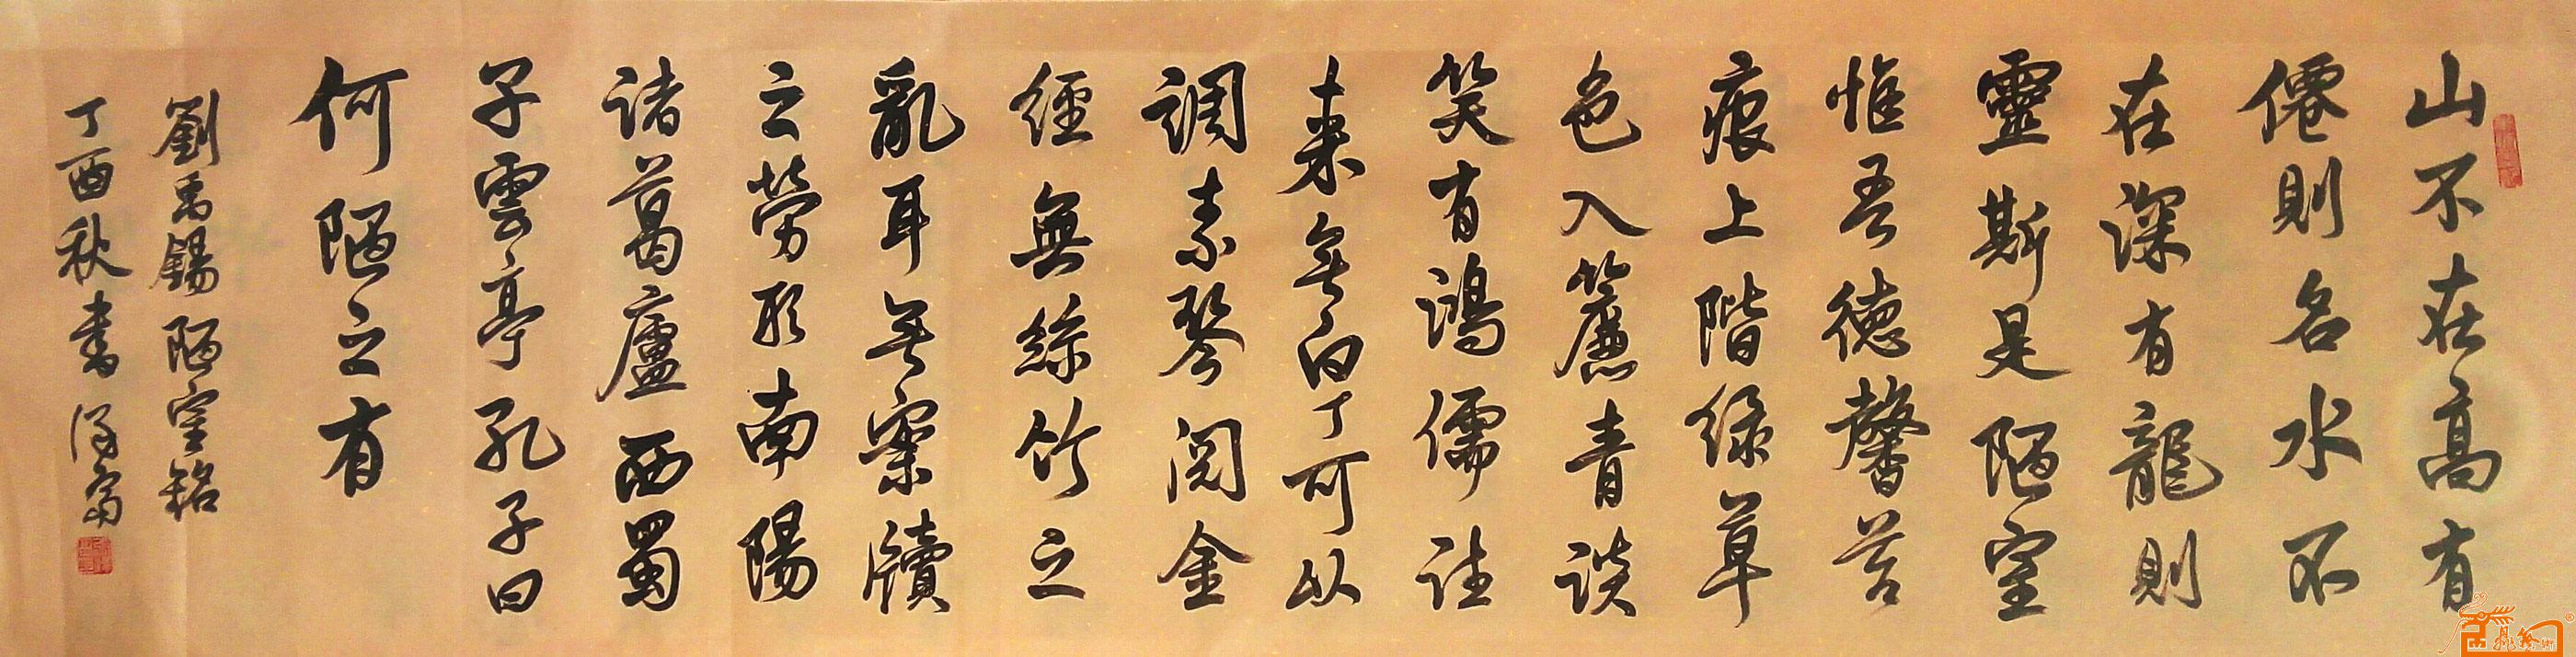 山不在高有
僊則名水不
在深有龍則
靈斯是陋室
惟吾德馨苔
痕上階綠草
色入簾青談
笑有鴻儒往
来無白丁可以
調素琴閱金
經無絲竹之
亂耳無案牘
之勞形南陽
諸葛廬西蜀
子雲亭孔子曰
何陋之有
劉禹錫陋室銘
丁酉秋書